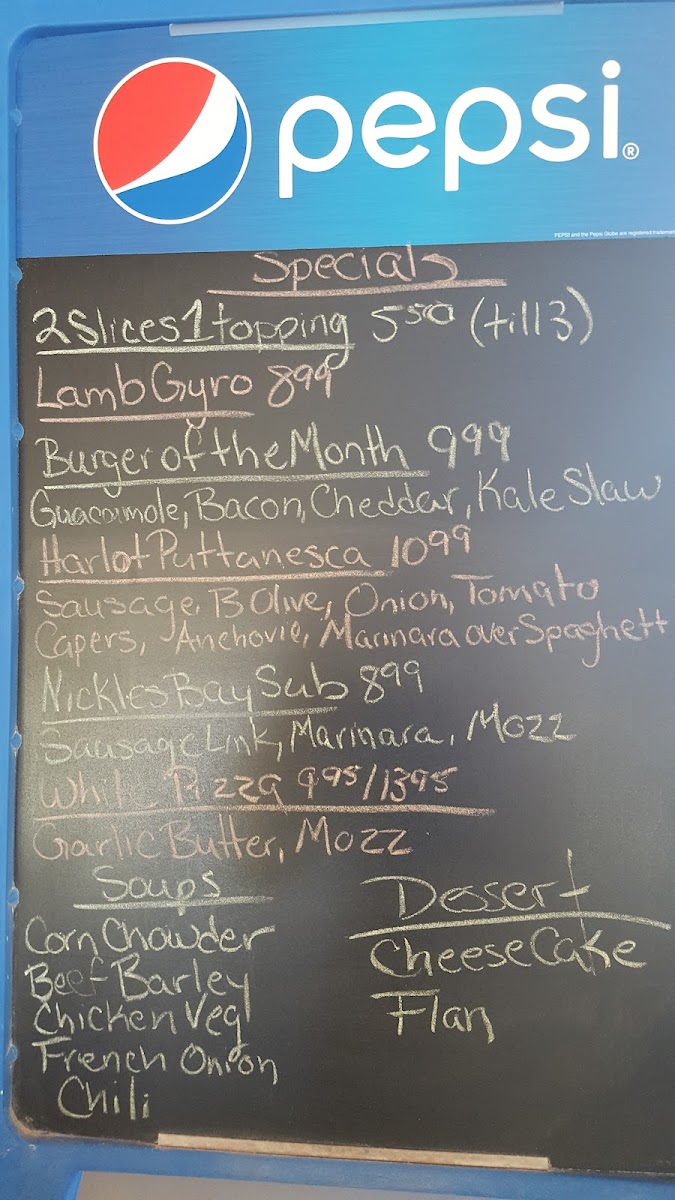 pepsi®
PEPSI and the Pepsi Globe are registered trademar
Specials
2 Slices 1 topping 5 50 (till 3)
Lamb Gyro 8 99
Burger of the Month 9 99
Guacamole, Bacon, Cheddar, Kale Slaw
Harlot Puttanesca 10 99
Sausage, B Olive, Onion, Tomato
Capers, Anchovie, Marinara over Spaghett
Nickles Bay Sub 8 99
Sausage Link, Marinara, Mozz
White Pizza 9 95/13 95
Garlic Butter, Mozz
Soups
Corn Chowder
Beef Barley
Chicken Veg
French Onion
Chili
Dessert
Cheese Cake
Flan